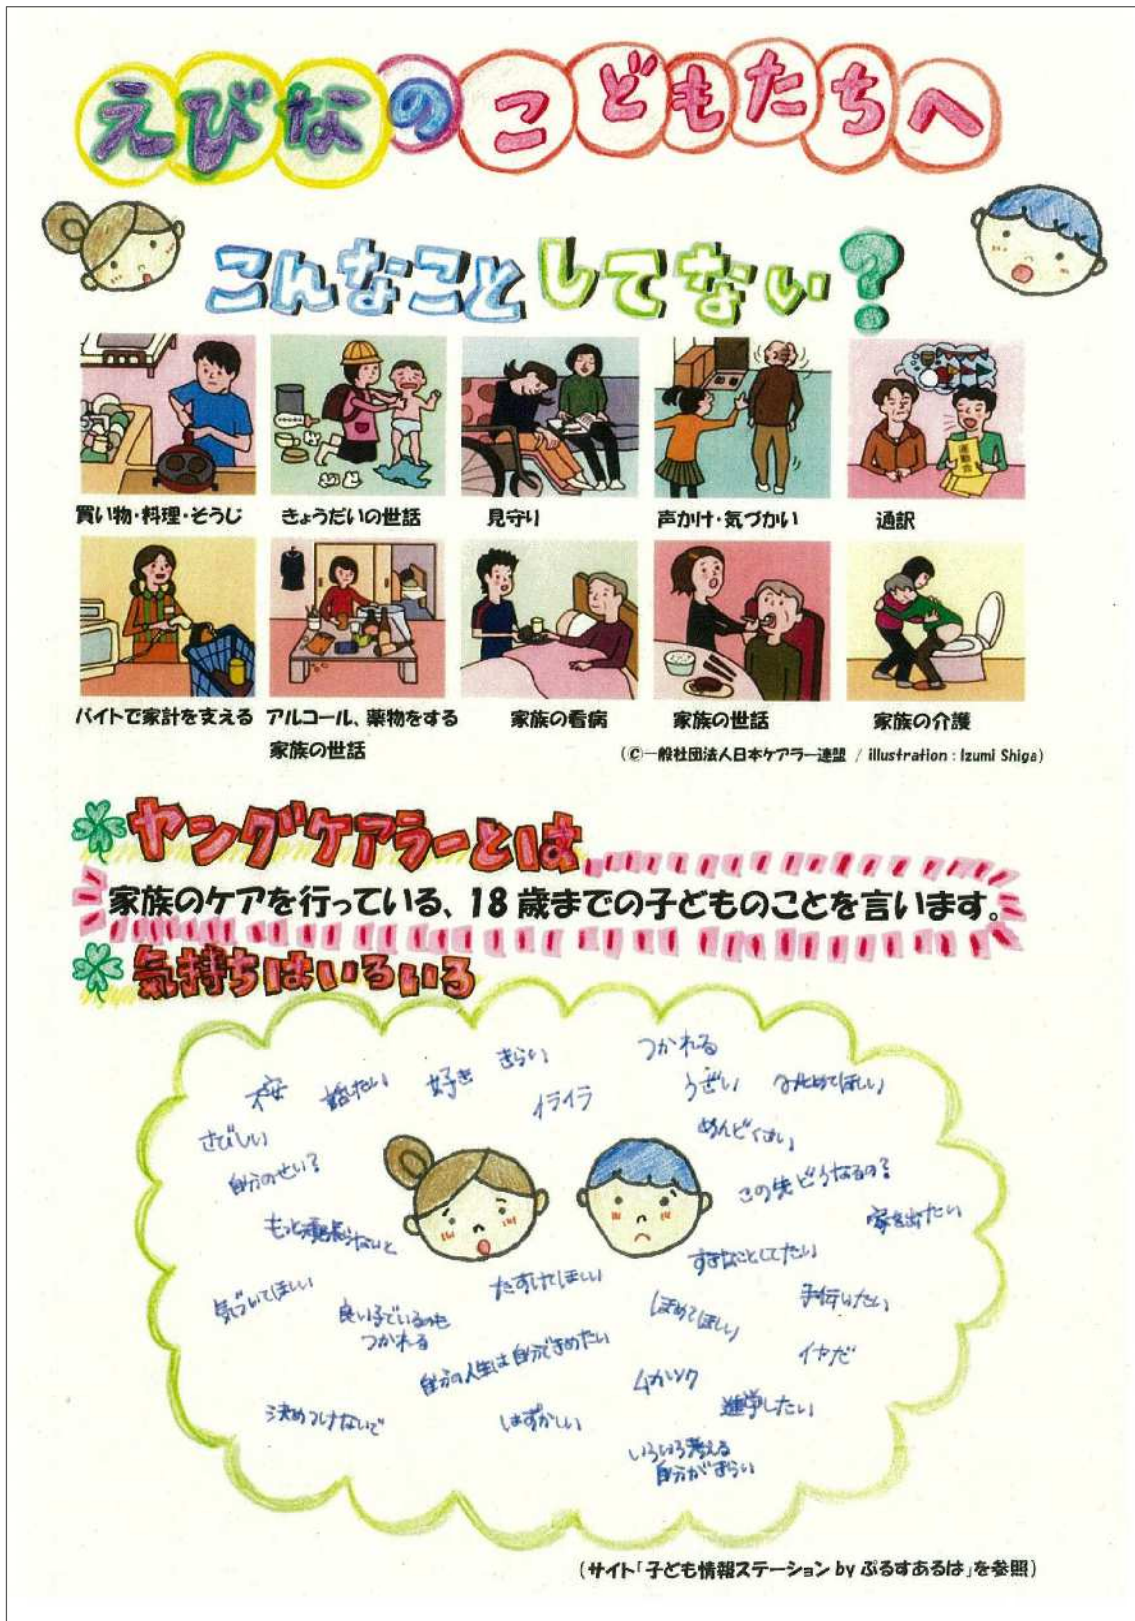 えびなのこどもたちへ
こんなことしてない?
運動会
買い物・料理・そうじ
きょうだいの世話
見守り
声かけ・気づかい
通訳
バイトで家計を支える
アルコール、薬物をする
家族の世話
家族の看病
家族の世話
家族の介護
(©一般社団法人日本ケアラー連盟 / illustration : Izumi Shiga)
ヤングケアラーとは
家族のケアを行っている、18歳までの子どものことを言います。
気持ちはいろいろ
不安
話したい
好き
きらい
イライラ
つかれる
うざい
みとめてほしい
さびしい
めんどくさい
自分のせい?
この先どうなるの?
家を出たい
もっと頑張らないと
すきなことしてたい
たすけてほしい
気づいてほしい
良い子でいるのも
つかれる
ほめてほしい
手伝いたい
自分の人生は自分できめたい
イヤだ
ムカツク
決めつけないで
はずかしい
進学したい
いろいろ考える
自分がずらい
(サイト「子ども情報ステーション by ぷるすあるは」を参照)